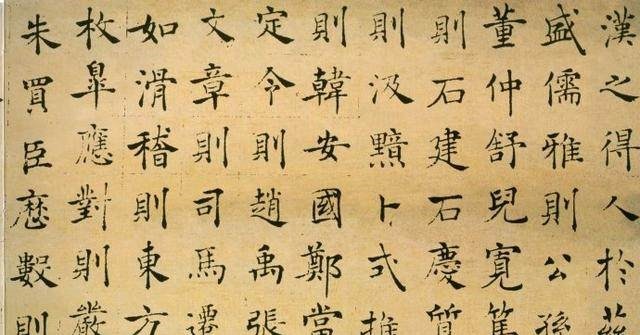 漢之得人於茲
盛儒雅則公孫
董仲舒兒寬篤
則石建石慶質
則汲黯卜式推
則韓安國鄭當
定令則趙禹張
文章則司馬遷
如滑稽則東方
枚皋應對則嚴
朱買臣歷數則